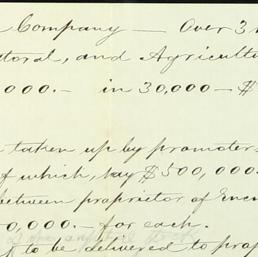 Company — Over 3
toral, and Agricultu
000.- in 30,000 — $
taken up by promoter
of which, say $500,000.
between proprietor of Encin
0,000.- for each.
to be delivered to prop